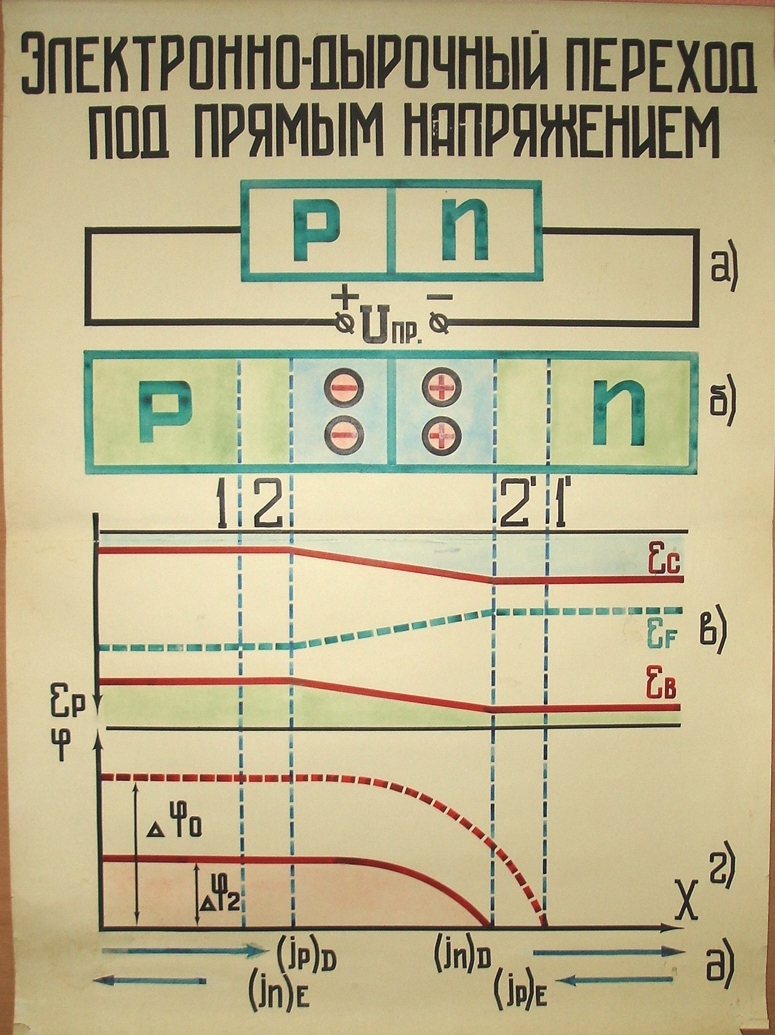 ЭЛЕКТРОННО-ДЫРОЧНЫЙ ПЕРЕХОД
ПОД ПРЯМЫМ НАПРЯЖЕНИЕМ
p n
а)
+ −
Uпр.
p − + n
− +
б)
1 2 2' 1'
εc
εF
в)
εв
εp
φ
△φ0
△φ2
г)
X
(jp)D (jn)D
(jn)E (jp)E
д)